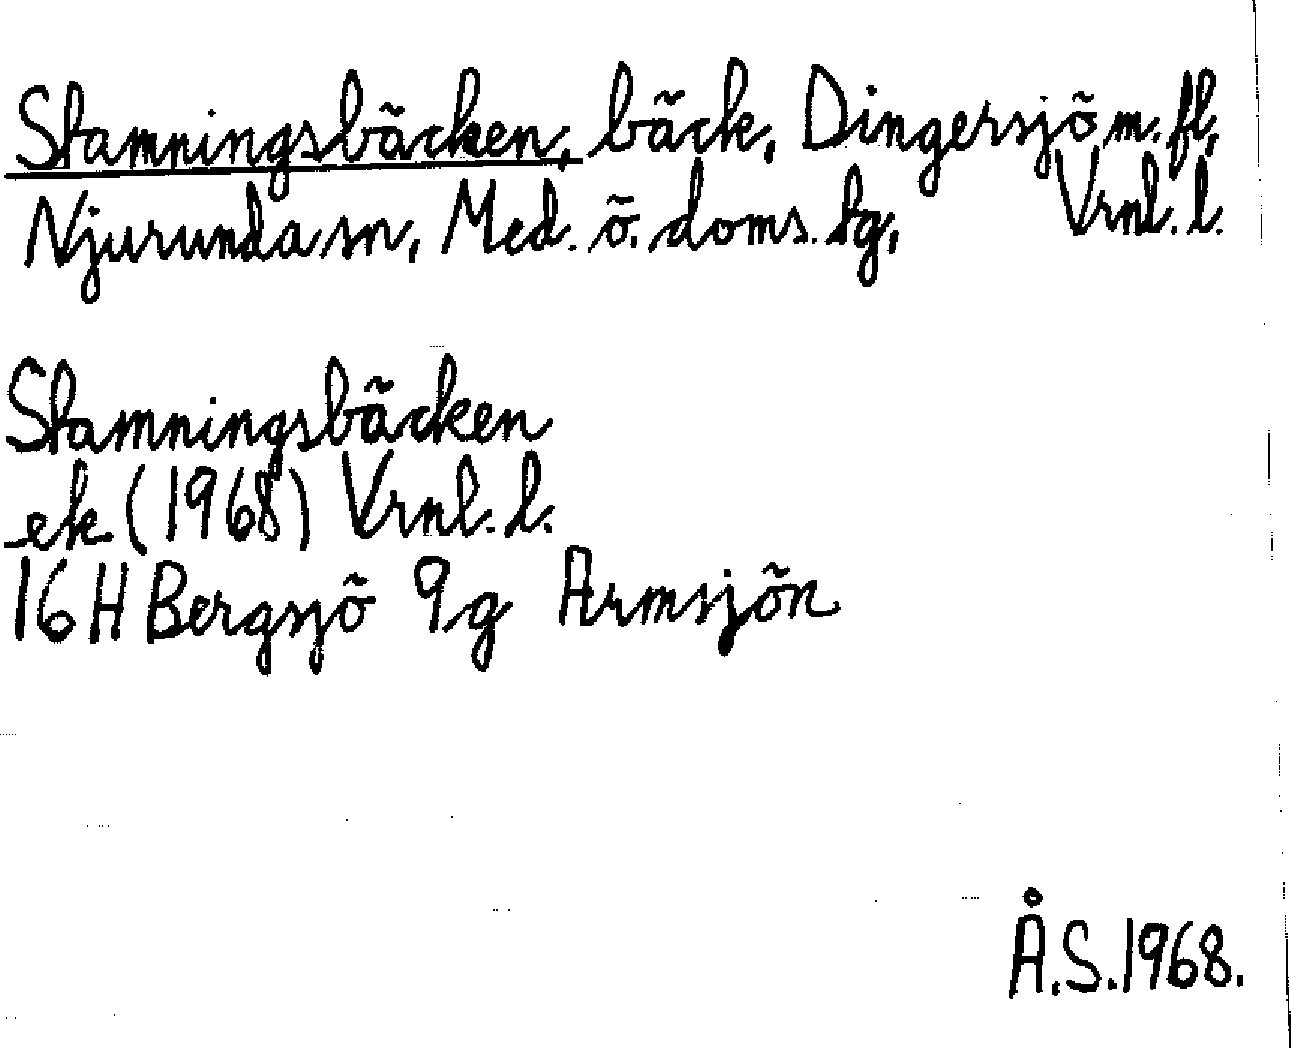 Stamningsbäcken, bäck, Dingersjö m.fl,
Njurunda sn, Med. ö. doms. tg, Vrnl. l.
Stamningsbäcken
ek (1968) Vrnl. l.
16 H Bergsjö 9g Armsjön
Å.S.1968.